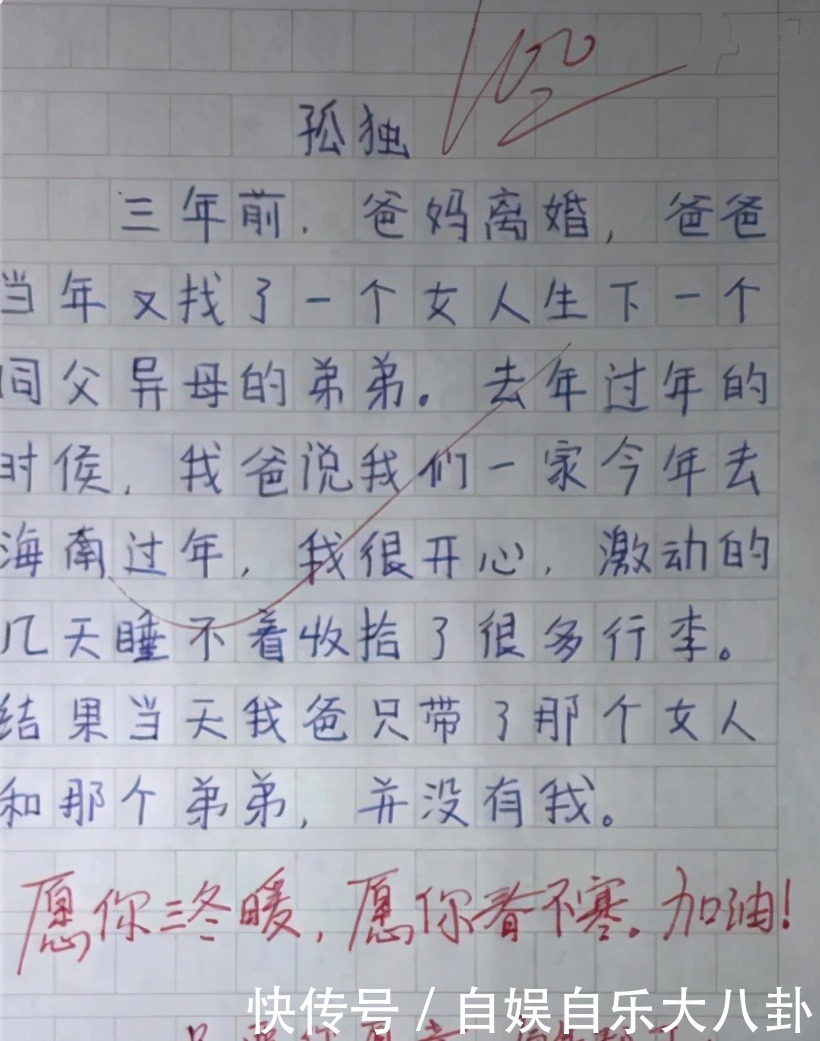 100
孤独
三年前．爸妈离婚，爸爸
当年又找了一个女人生下一个
同父异母的弟弟。去年过年的
时侯，我爸说我们一家今年去
海南过年，我很开心，激动的
几天睡不着收拾了很多行李。
结果当天我爸只带了那个女人
和那个弟弟，并没有我。
愿你三冬暖，愿你春不寒。加油!
快传号 / 自娱自乐大八卦